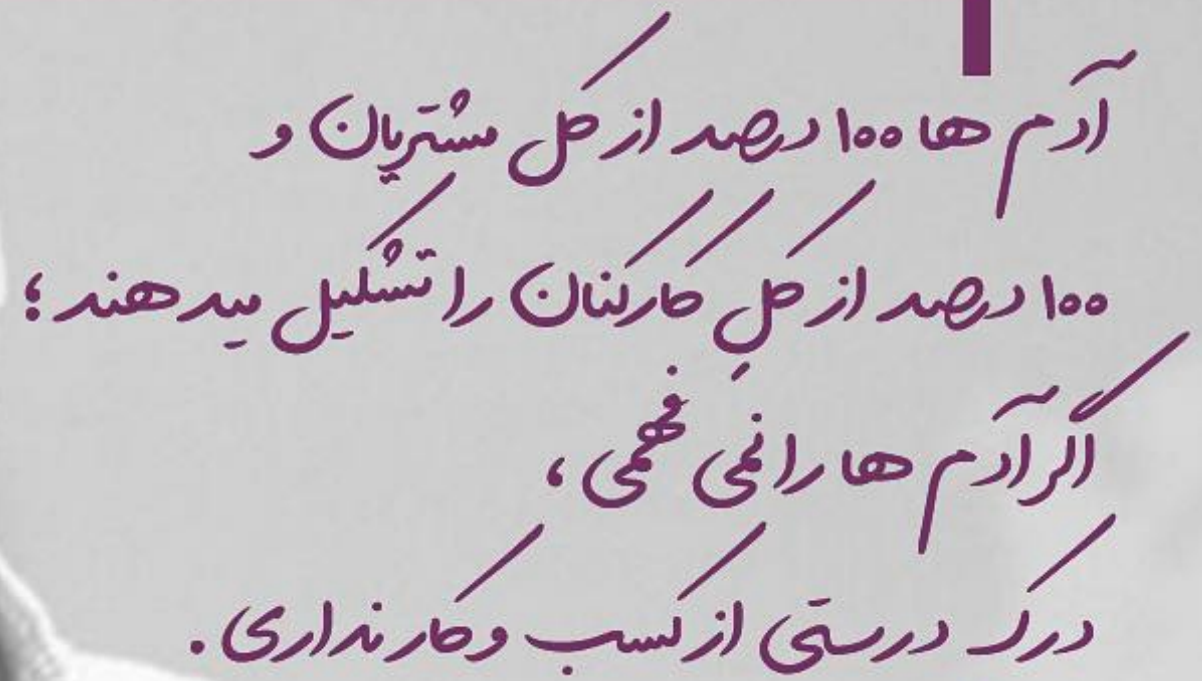 آدم ها ۱۰۰ درصد از کل مشتریان و
۱۰۰ درصد از کلِ کارکنان را تشکیل میدهند؛
اگر آدم ها را نمی فهمی،
درک درستی از کسب وکار نداری.